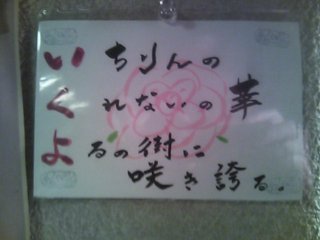 いちりんの
くれないの華
よるの街に
咲き誇る。